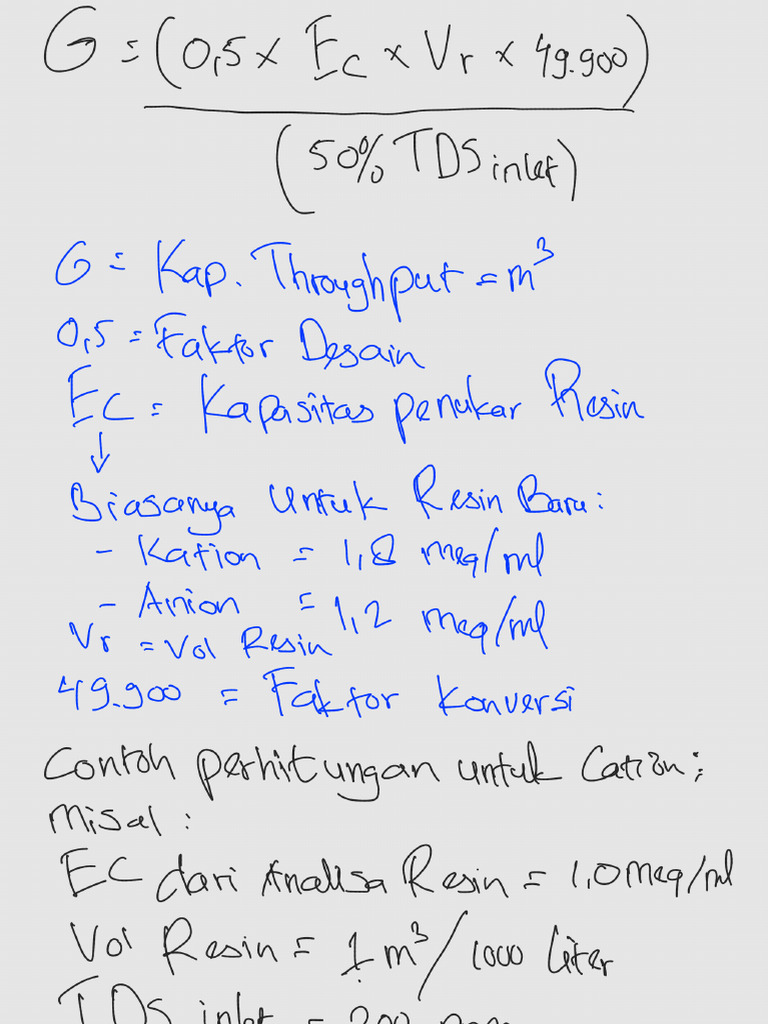 G = (0,5 x Ec x Vr x 49.900)
(50% TDS inlet)
G = Kap. Throughput = m³
0,5 = Faktor Desain
EC = Kapasitas penukar Resin
↓
Biasanya untuk Resin Baru:
- Kation = 1,8 meq/ml
- Anion = 1,2 meq/ml
Vr = Vol Resin
49.900 = Faktor Konversi
Contoh perhitungan untuk Cation;
Misal:
EC dari Analisa Resin = 1,0 meq/ml
Vol Resin = 1 m³/1000 liter
TDS inlet = 200 ppm